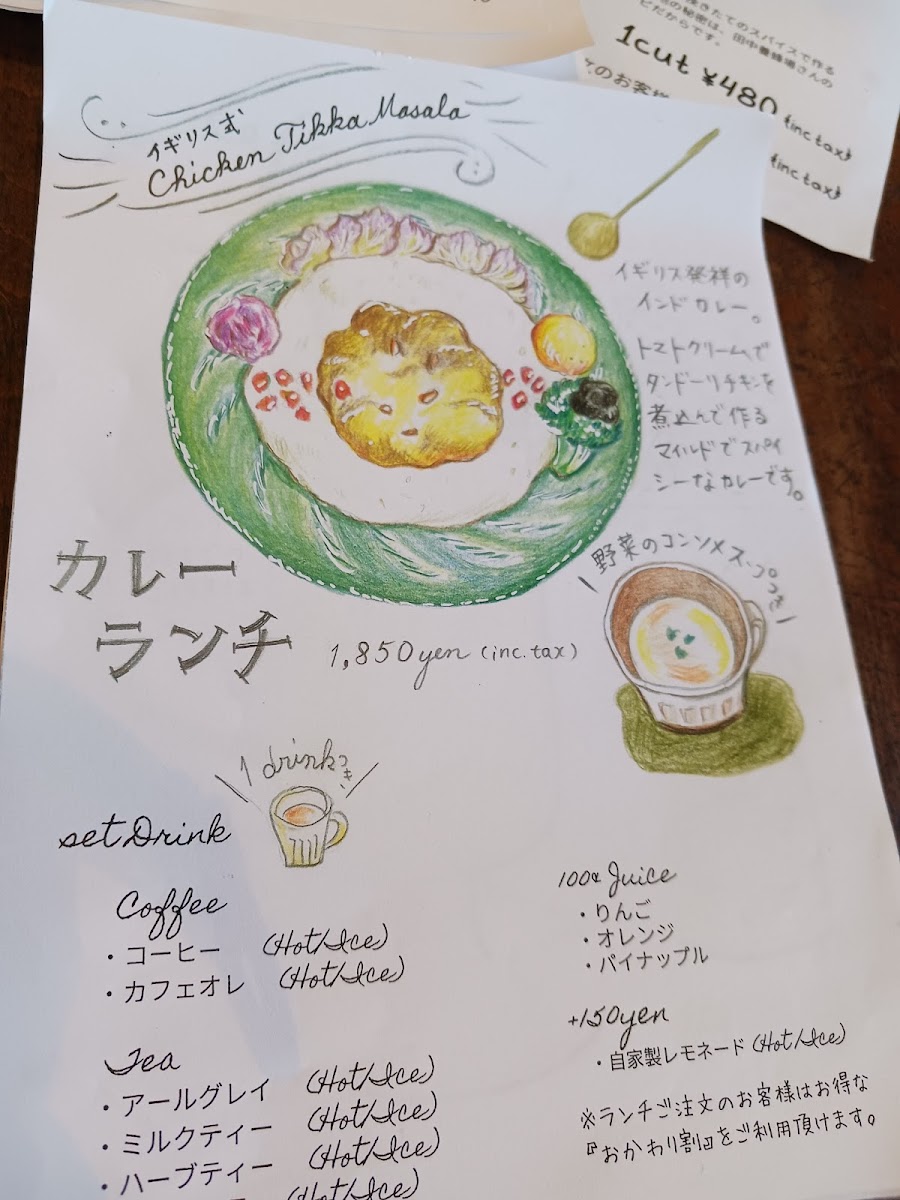 挽きたてのスパイスで作る
の秘密は、田中養蜂場さんの
だからです。
1cut ¥480 (inc tax)
のお客様
(inc tax)
イギリス式
Chicken Tikka Masala
イギリス発祥の
インドカレー。
トマトクリームで
タンドーリチキンを
煮込んで作る
マイルドでスパイ
シーなカレーです。
カレー
ランチ
1,850yen (inc.tax)
野菜のコンソメスープつき
1 drinkつき
set Drink
Coffee
・コーヒー (Hot/Ice)
・カフェオレ (Hot/Ice)
Tea
・アールグレイ (Hot/Ice)
・ミルクティー (Hot/Ice)
・ハーブティー (Hot/Ice)
(Hot/Ice)
100% Juice
・りんご
・オレンジ
・パイナップル
+150yen
・自家製レモネード (Hot/Ice)
※ランチご注文のお客様はお得な
『おかわり割』をご利用頂けます。